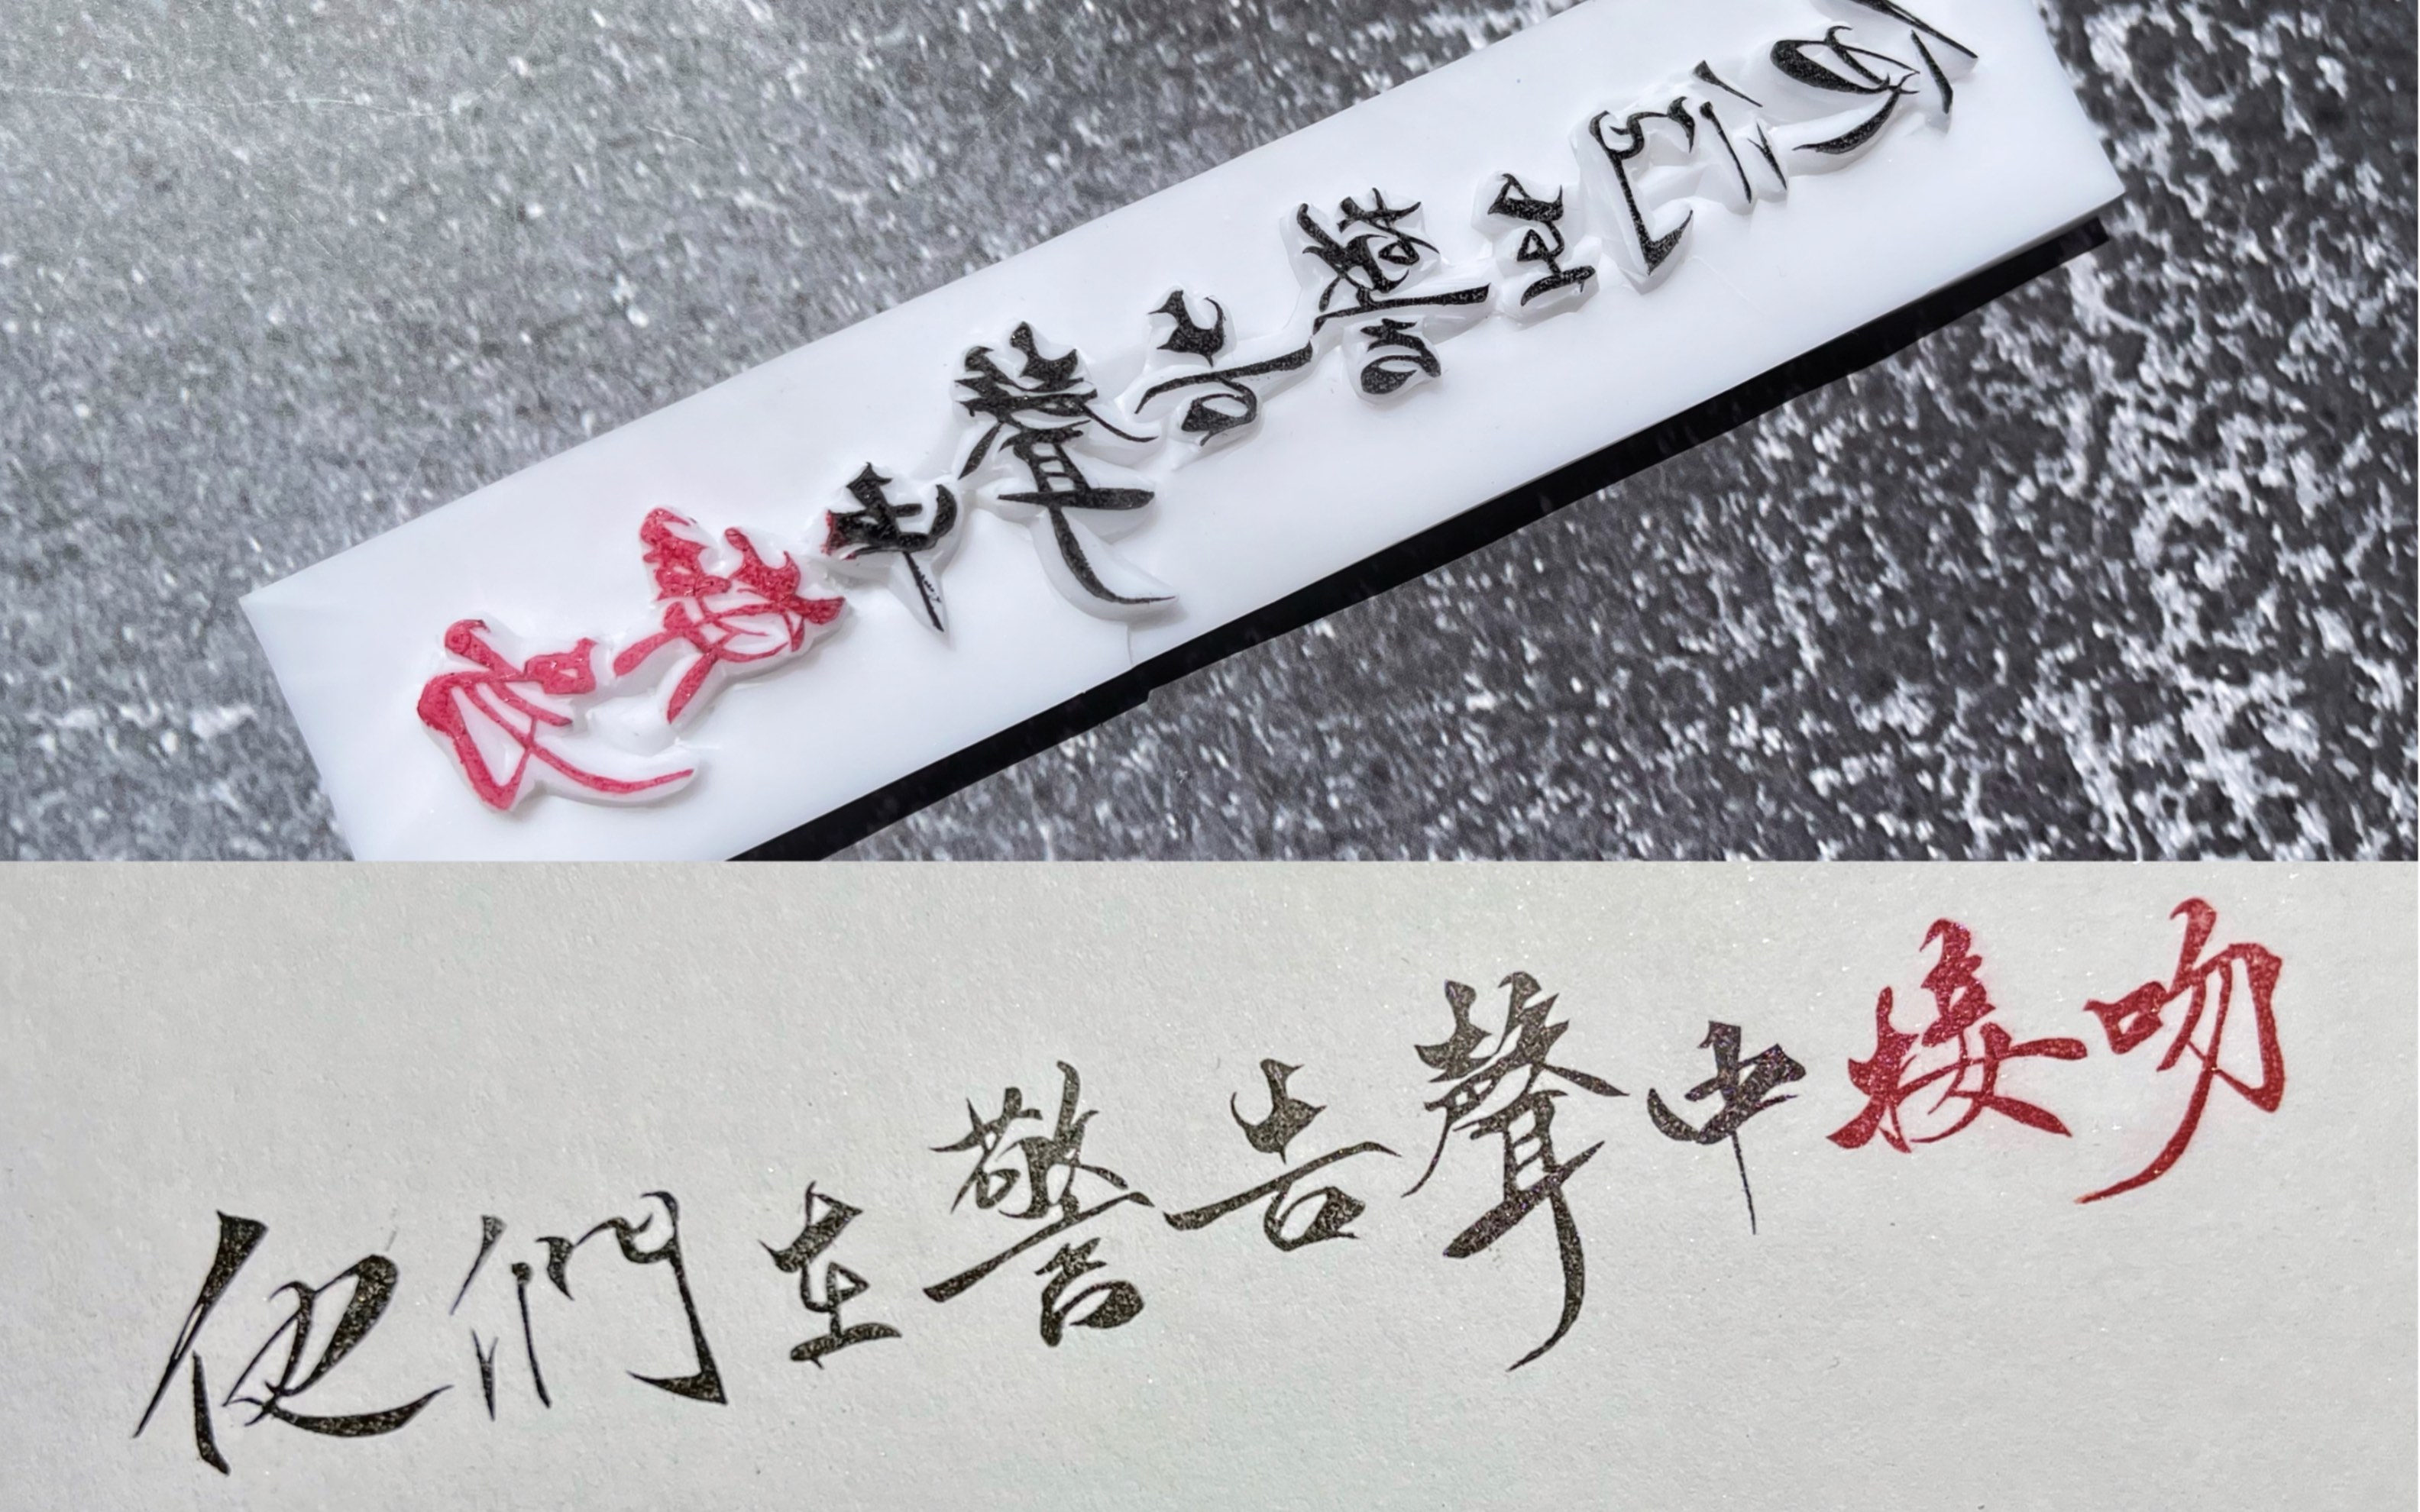 他們在警告聲中接吻